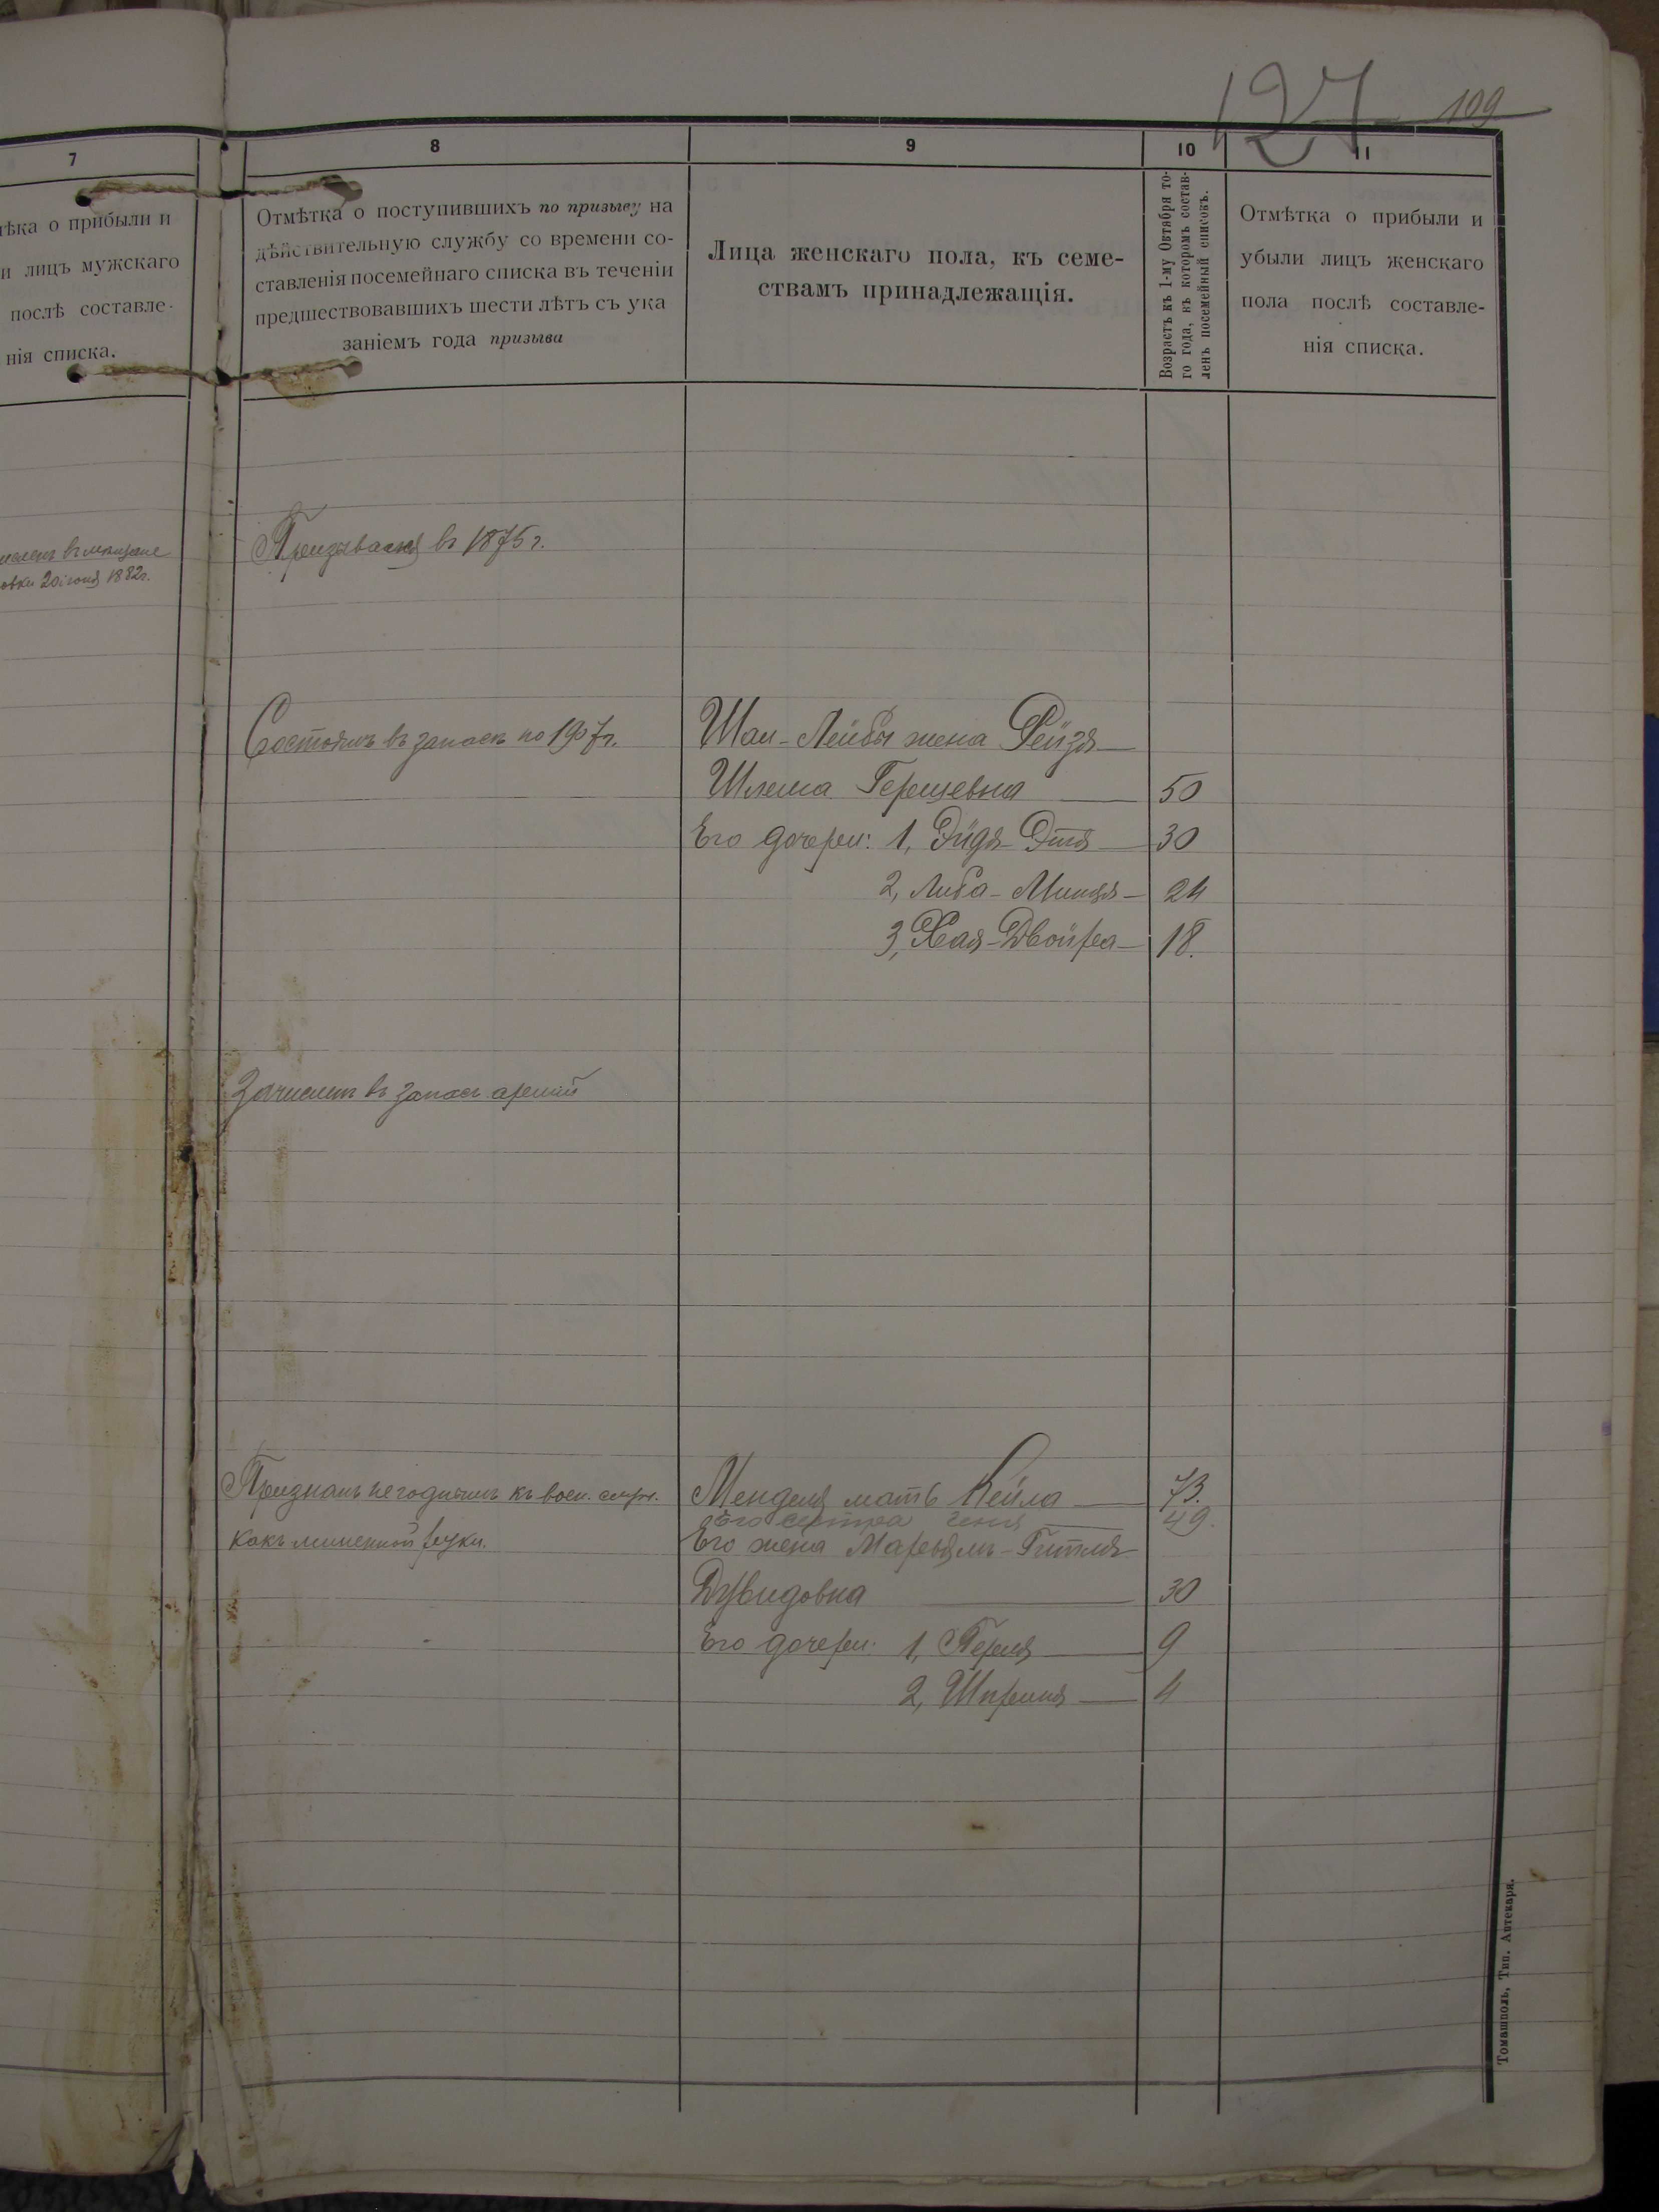 127 109
7
8
9
10
11
ѣка о прибыли и
и лицъ мужскаго
послѣ составле-
нія списка.
Отмѣтка о поступившихъ по призыву на
дѣйствительную службу со времени со-
ставленія посемейнаго списка въ теченіи
предшествовавшихъ шести лѣтъ съ ука
заніемъ года призыва
Лица женскаго пола, къ семе-
ствамъ принадлежащія.
Возрастъ къ 1-му Октября то-
го года, въ которомъ состав-
ленъ посемейный списокъ.
Отмѣтка о прибыли и
убыли лицъ женскаго
пола послѣ составле-
нія списка.
въ мѣщане
овки 20 іюня 1882г.
Призывался въ 1875 г.
Состоитъ въ запасѣ по 1907 г.
Шаи-Лейбы жена Рейзя
Шлема Гершевна 50
Его дочери: 1, Эйдя-Этя 30
2, Либа-Минця 24
3, Хая-Двойра 18.
Зачисленъ въ запасъ армии
Признанъ негоднымъ къ воен. служ.
какъ лишенный руки.
Менделя мать Кейла 73.
Его сестра Геня 49.
Его жена Марьямъ-Гитля
Дувидовна 30
Его дочери: 1, Перля 9
2, Шпринця 4
Томашполь, Тип. Аптекаря.